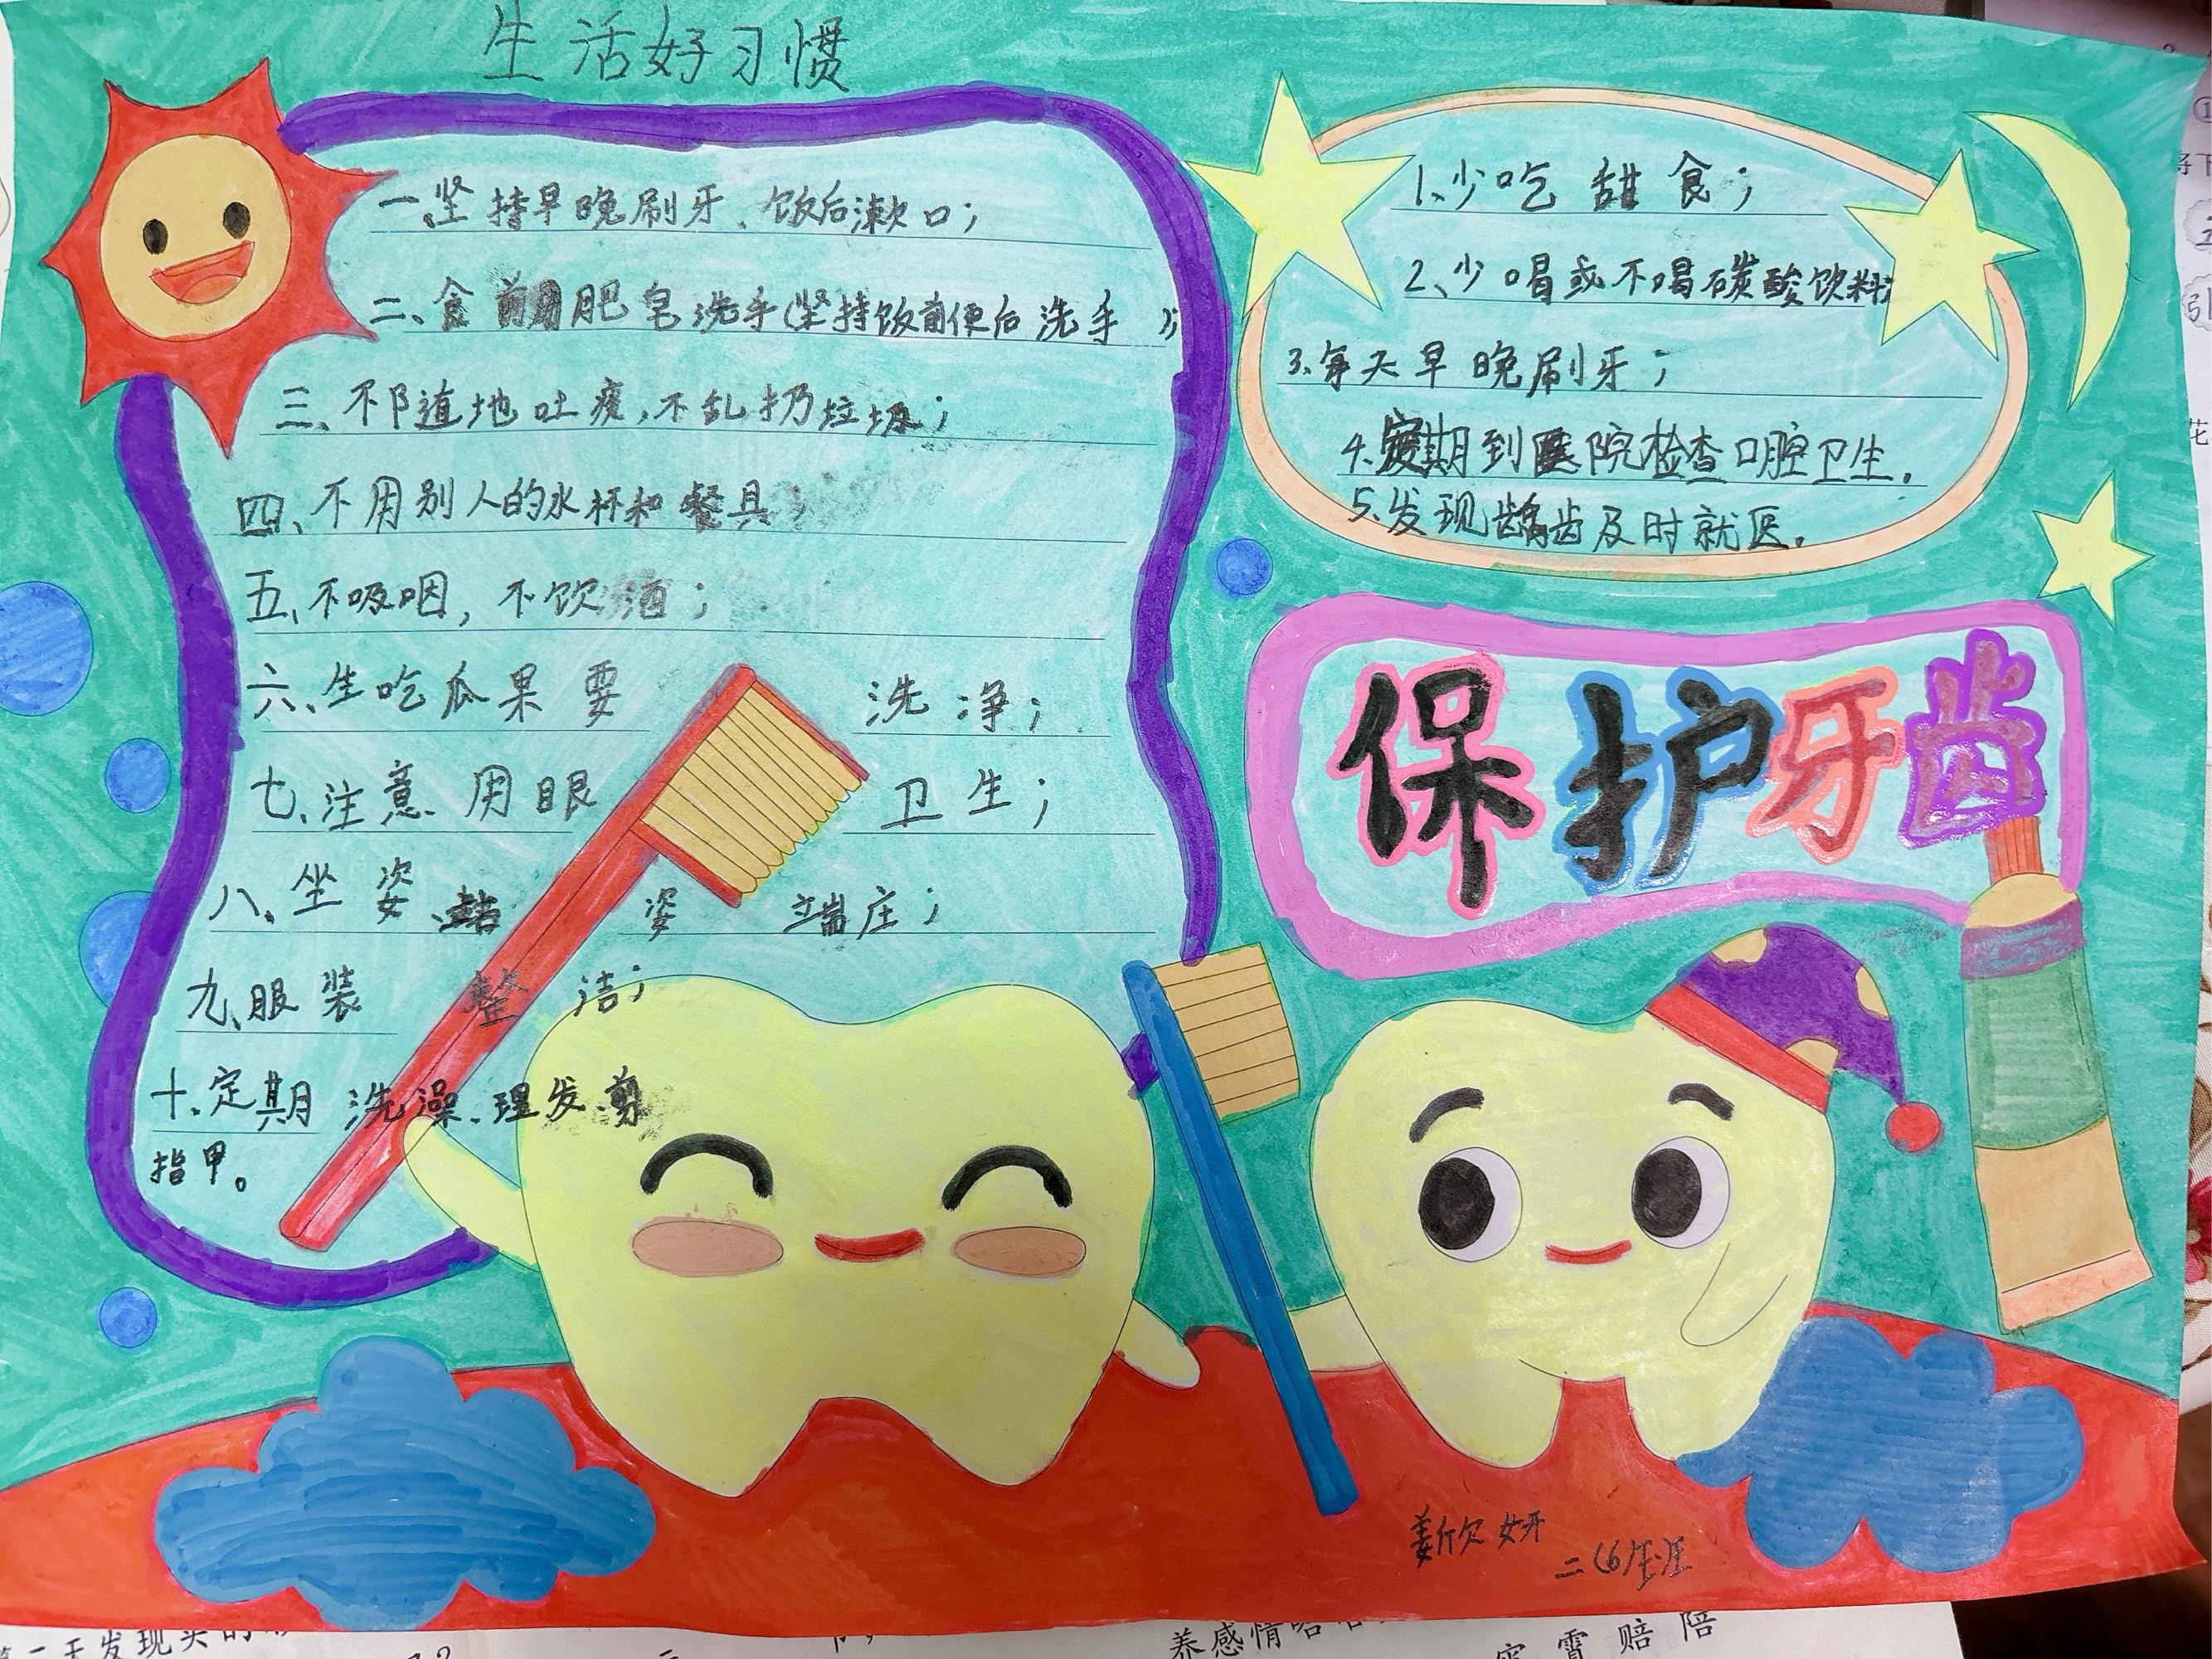 生活好习惯
一、坚持早晚刷牙、饭后漱口；
二、食前用肥皂洗手(坚持饭前便后洗手)；
三、不随地吐痰，不乱扔垃圾；
四、不用别人的水杯和餐具；
五、不吸咽，不饮酒；
六、生吃瓜果要洗净；
七、注意用眼卫生；
八、坐姿、站姿端庄；
九、服装整洁；
十、定期洗澡、理发、剪
指甲。
1、少吃甜食；
2、少喝或不喝碳酸饮料；
3、每天早晚刷牙；
4、定期到医院检查口腔卫生.
5、发现龋齿及时就医.
保护牙齿
姜欣妍
二(6)班
第二天发现
养感情
霄赔陪